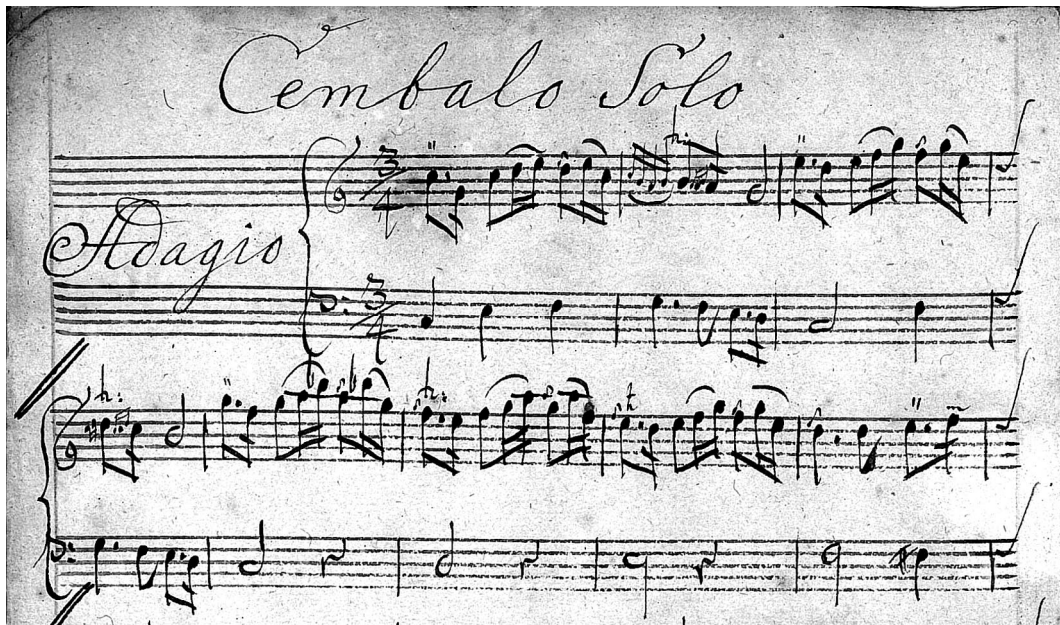 Cembalo Solo
Adagio
3/4
3/4